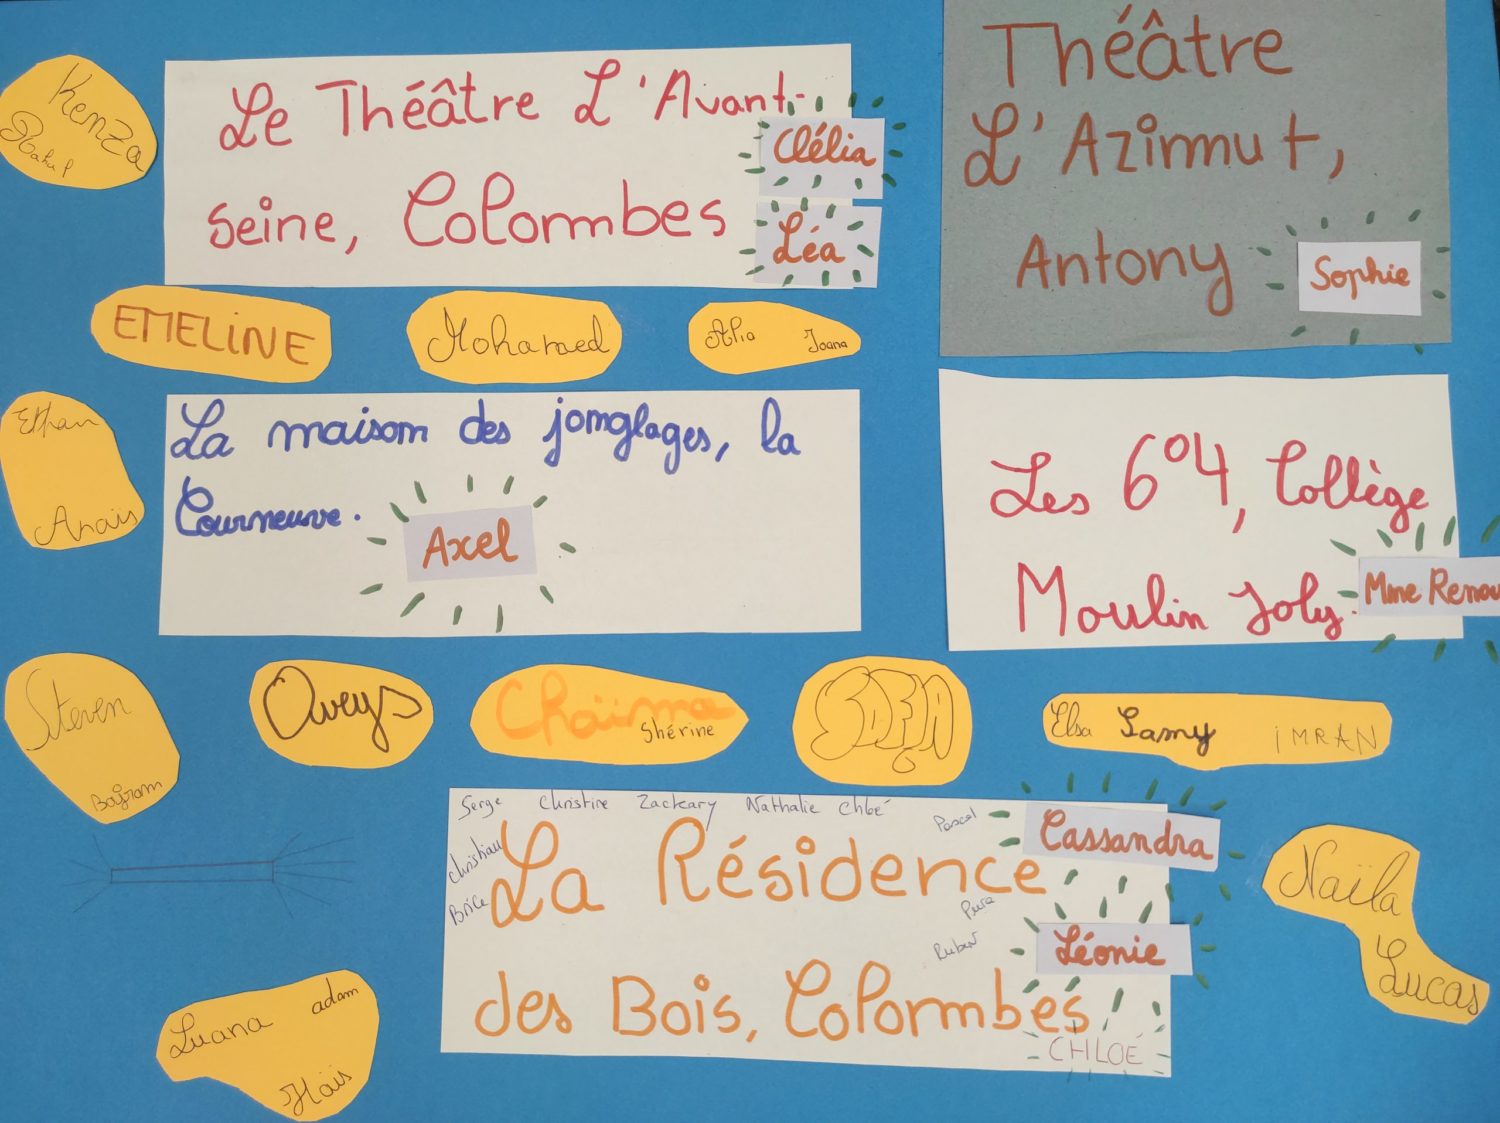 Kenza
Le Théâtre L'Avant-
seine, Colombes
Clélia
Léa
Théâtre
L'Azimut,
Antony
Sophie
EMELINE
Mohamed
Alia
Joana
Ethan
Anaïs
La maison des jonglages, la
Courneuve.
Axel
Les 6°4, Collège
Moulin Joly.
Mme Renou
Steven
Bajram
Oweys
Chaïma
Shérine
SOFIA
Elsa
Samy
IMRAN
Serge Christine Zackary Nathalie Chloé
Pascal
Christian
Brice
La Résidence
des Bois, Colombes
Cassandra
Pura
Ruben
Léonie
CHLOÉ
Naïla
Lucas
Luana
adam